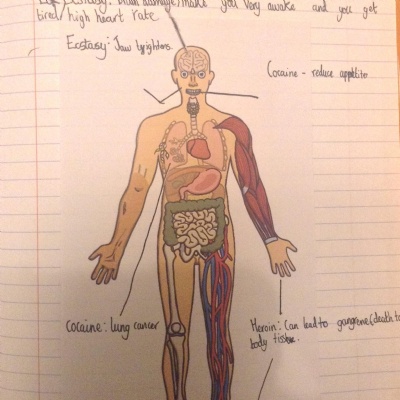 Ecstasy: brain damage/make you very awake and you get
tired/high heart rate
Ecstasy: Jaw tightens
Cocaine - reduce appetite
Cocaine: lung cancer
Heroin: Can lead to gangrene(death to
body tissue.